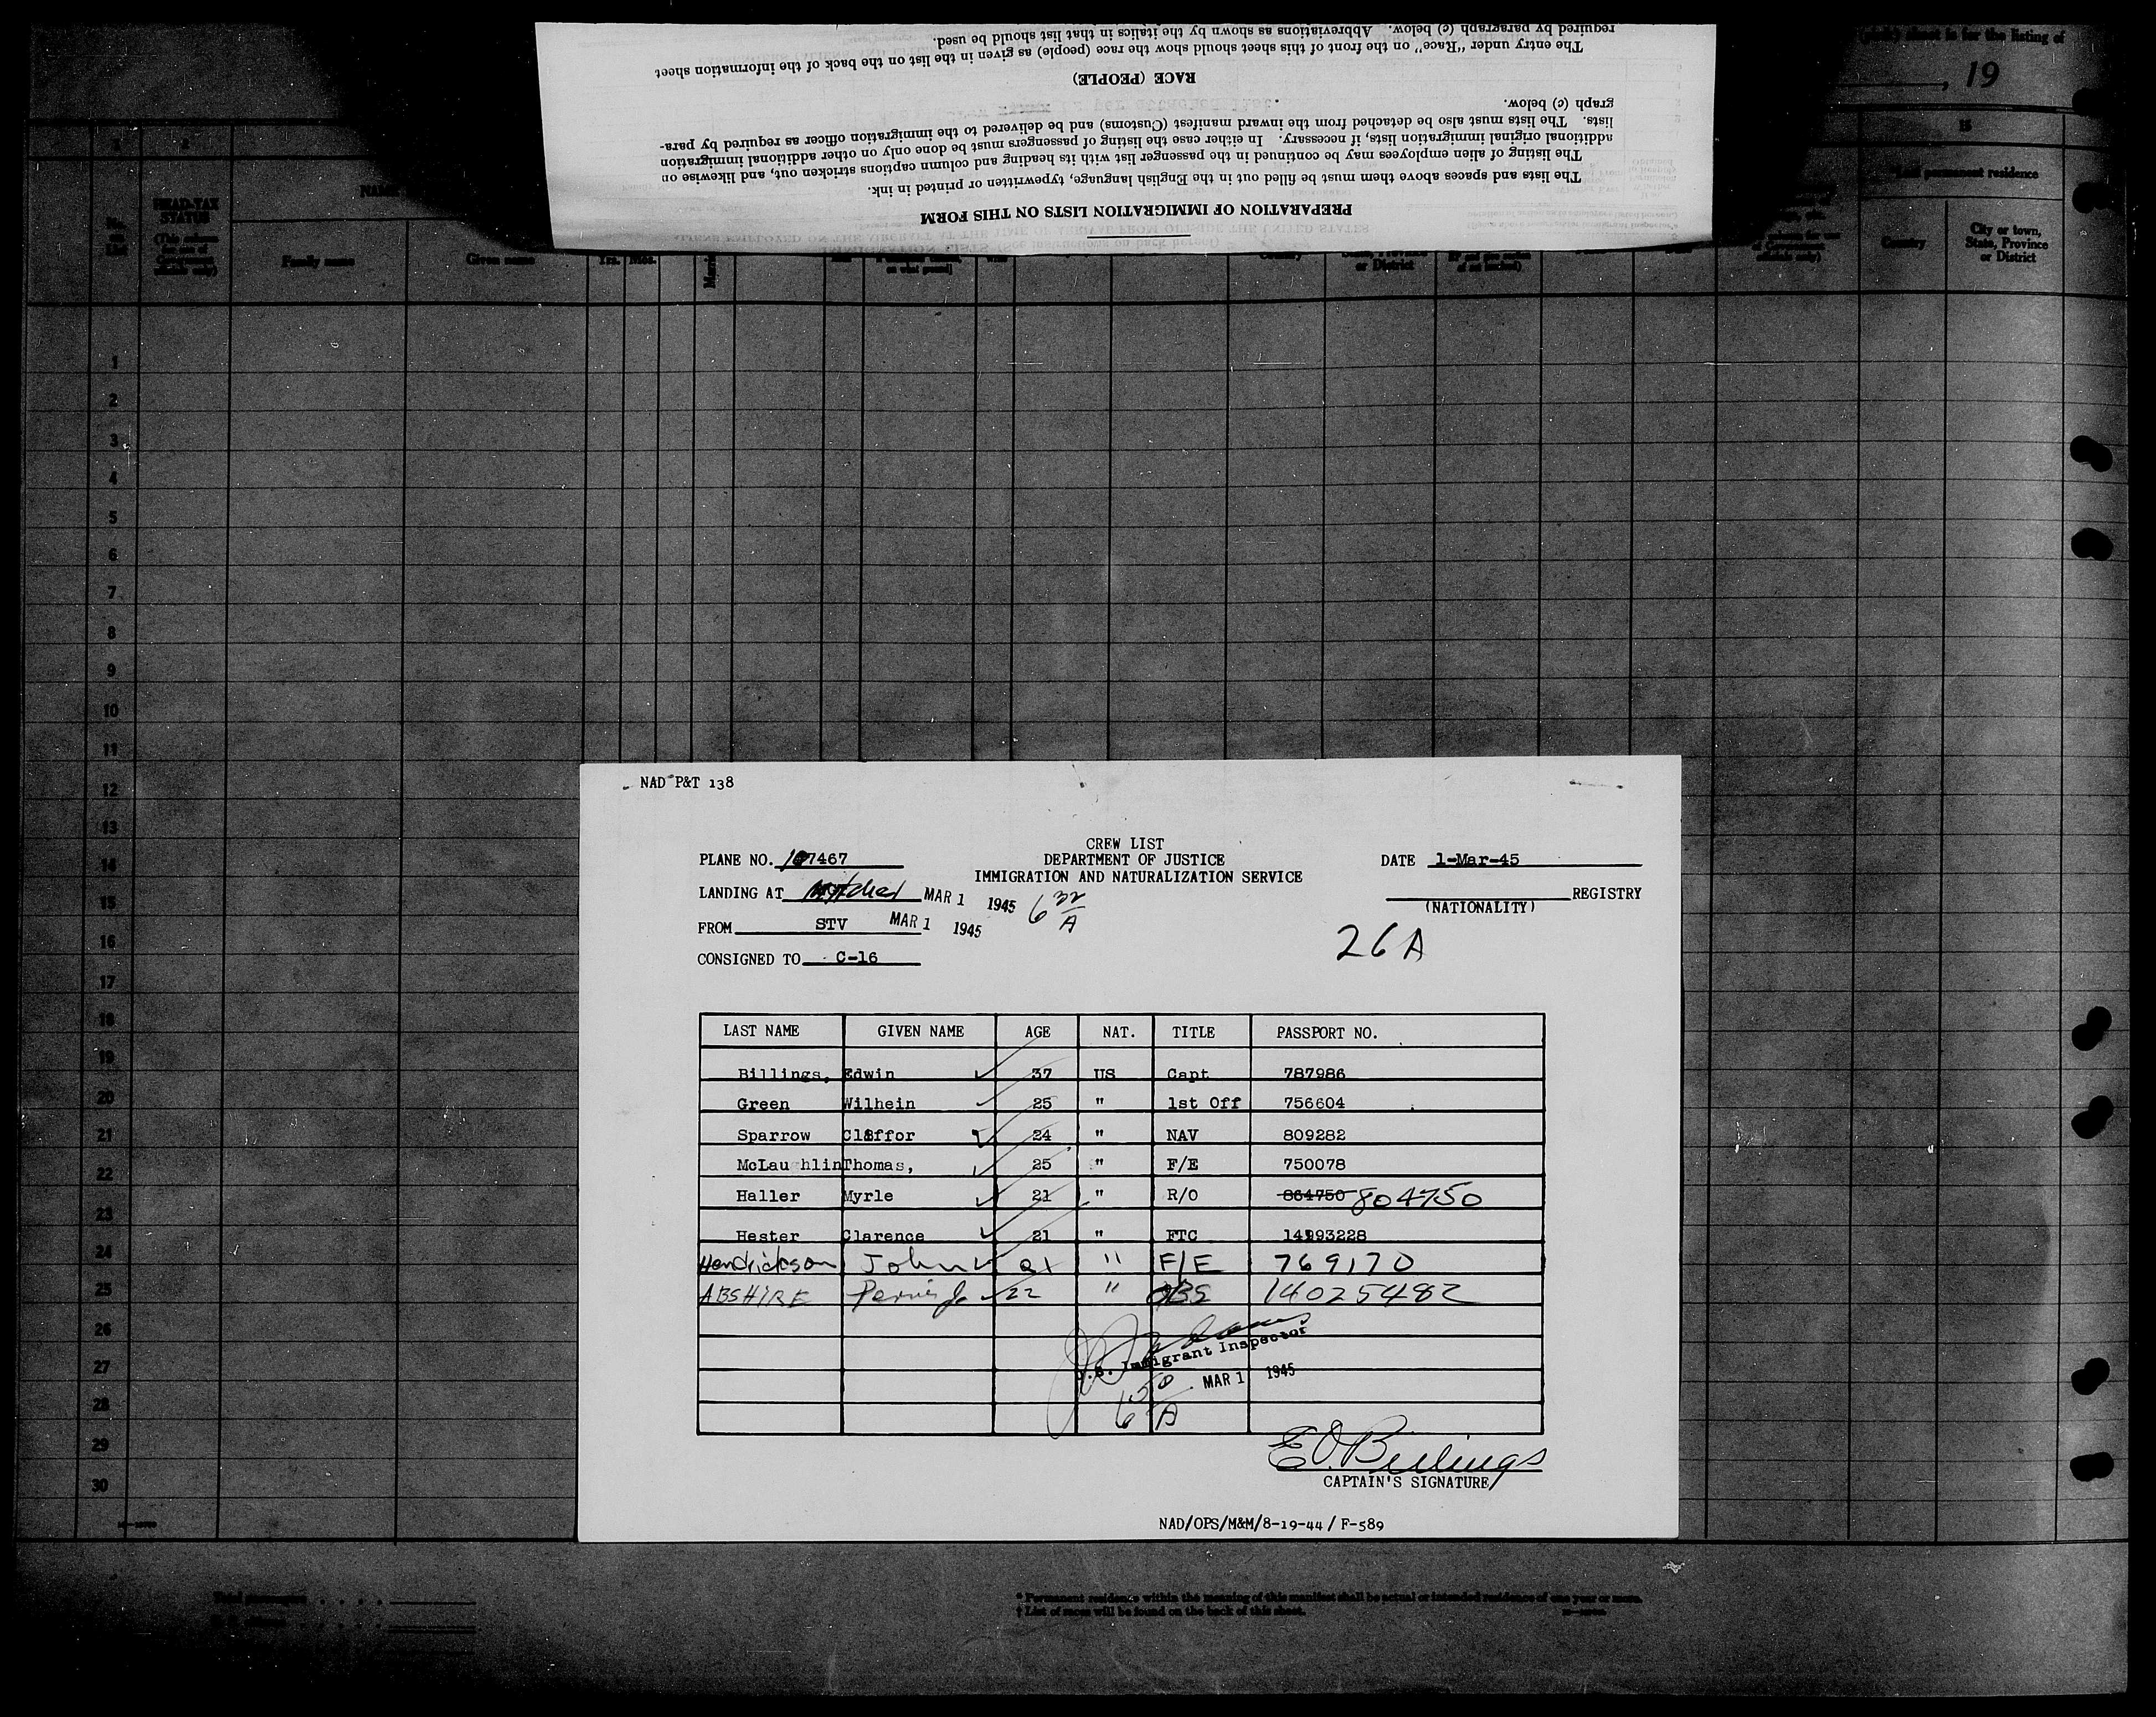 required by paragraph (c) below. Abbreviations as shown by the italics in that list should be used.
The entry under "Race" on the front of this sheet should show the race (people) as given in the list on the back of the information sheet
RACE (PEOPLE)
graph (c) below.
lists. The lists must also be detached from the inward manifest (Customs) and be delivered to the immigration officer as required by para-
additional original immigration lists, if necessary. In either case the listing of passengers must be done only on other additional immigration
The listing of alien employees may be continued in the passenger list with its heading and column captions stricken out, and likewise on
The lists and spaces above them must be filled out in the English language, typewritten or printed in ink.
PREPARATION OF IMMIGRATION LISTS ON THIS FORM
sheet is for the listing of
, 19
15
HEAD-TAX STATUS
Family name
Given name
Yrs. Mos.
or District
permanent residence
Country
City or town, State, Province or District
1
2
3
4
5
6
7
8
9
10
11
12
13
14
15
16
17
18
19
20
21
22
23
24
25
26
27
28
29
30
NAD P&T 138
CREW LIST
PLANE NO. 107467 DEPARTMENT OF JUSTICE DATE 1-Mar-45
IMMIGRATION AND NATURALIZATION SERVICE
LANDING AT Mitchel MAR 1 1945 6 32 A REGISTRY
(NATIONALITY)
FROM STV MAR 1 1945
26A
CONSIGNED TO C-16
LAST NAME GIVEN NAME AGE NAT. TITLE PASSPORT NO.
Billings, Edwin 37 US Capt 787986
Green Wilhein 25 " 1st Off 756604
Sparrow Cliffor 24 " NAV 809282
McLaughlin Thomas, 25 " F/E 750078
Haller Myrle 21 " R/O 864750 804750
Hester Clarence 21 " FTC 14993228
Hendrickson John 21 " F/E 769170
ABSHIRE 22 " OBS 14025482
U.S. Immigrant Inspector
MAR 1 1945
6 50 A
E O. Billings
CAPTAIN'S SIGNATURE
NAD/OPS/M&M/8-19-44 / F-589
* Permanent residence within the meaning of this manifest shall be actual or intended residence of one year or more.
† List of races will be found on the back of this sheet.